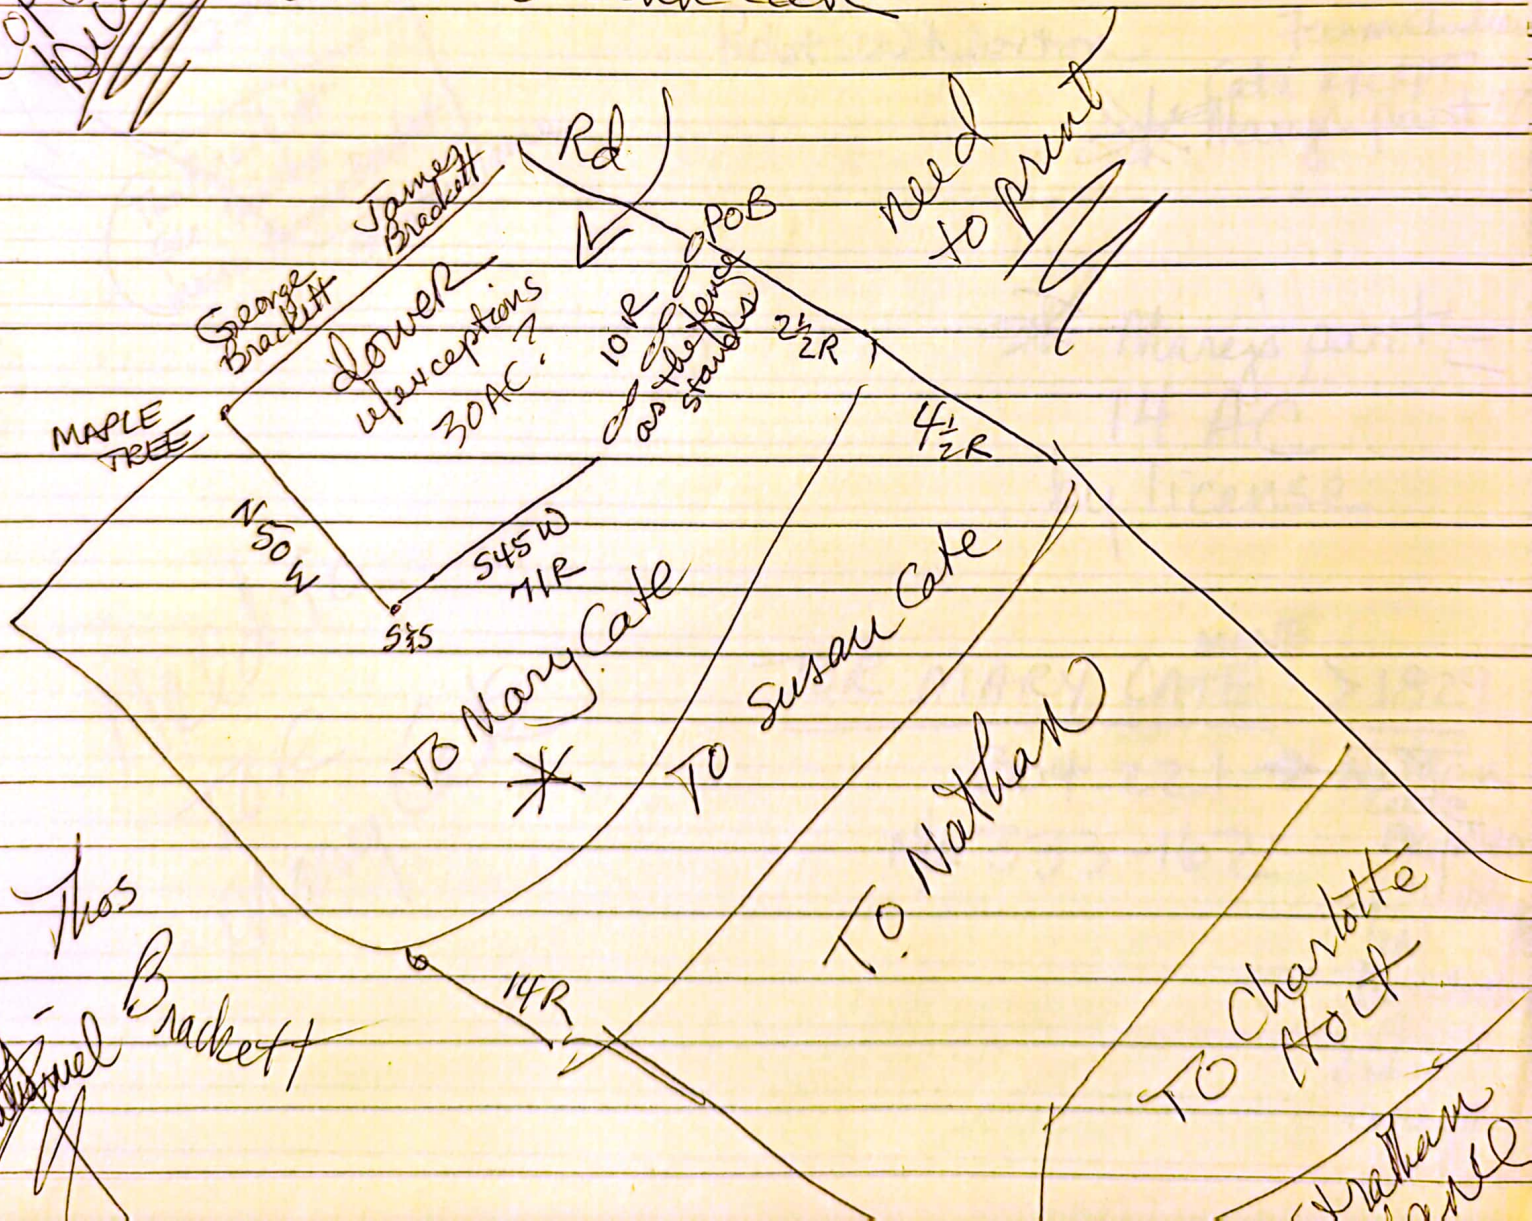 Rd
need
to print
POB
James
Brackett
George
Brackett
dower
w/exceptions
30AC?
10R
as the fence
stands
2½R
4½R
MAPLE
TREE
N50W
S45W
71R
S&S
To Mary Cate
*
To Susan Cate
To Nathan
To Charlotte
Hoit
Thos
Brackett
14R